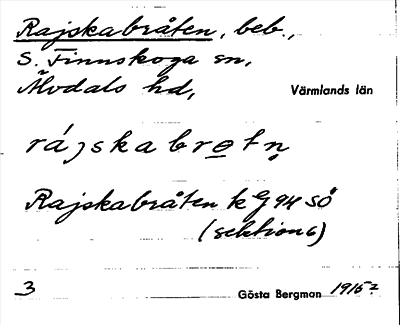 Rajskabråten, beb.,
S. Finnskoga sn,
Älvdals hd,
Värmlands län
rájskabrọtn̥
Rajskabråten k G 94 SÖ
(sektion 6)
3
Gösta Bergman 1915?